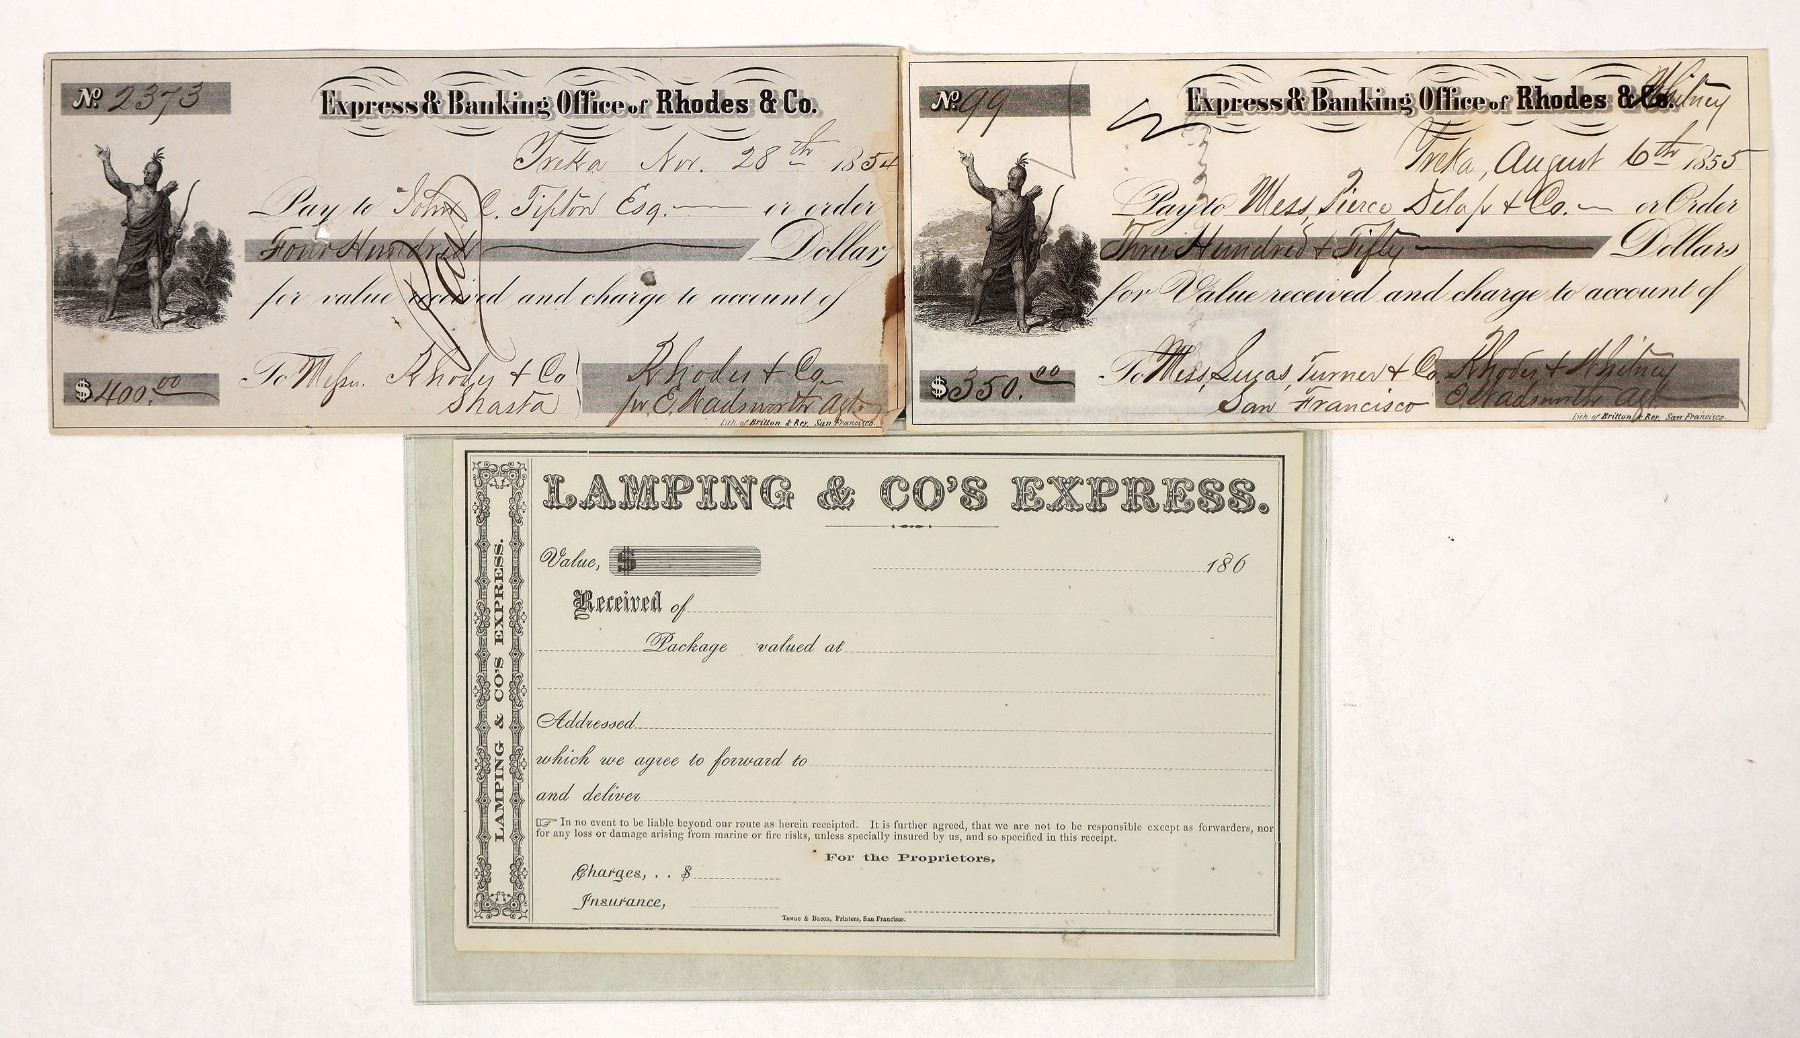 No. 2373
Express & Banking Office of Rhodes & Co.
Yreka Nov. 28th 1854
Pay to John C. Tipton Esq. or order
Four Hundred Dollars
for value received and charge to account of
Paid
$400.00
To Messrs. Rhodes & Co
Shasta
Rhodes & Co
for E. Wadsworth Agt.
Lith. of Britton & Rey. San Francisco.
No. 99
Express & Banking Office of Rhodes & Co. Whitney
Yreka, August 6th 1855
Pay to Mess, Pierce Delap & Co. or Order
Three Hundred & Fifty Dollars
for Value received and charge to account of
$350.00
To Mess, Lucas, Turner & Co.
San Francisco
Rhodes & Whitney
E. Wadsworth Agt
Lith. of Britton & Rey. San Francisco.
LAMPING & CO'S EXPRESS.
LAMPING & CO'S EXPRESS.
Value, $ 186
Received of
Package valued at
Addressed
which we agree to forward to
and deliver
☞ In no event to be liable beyond our route as herein receipted. It is further agreed, that we are not to be responsible except as forwarders, nor
for any loss or damage arising from marine or fire risks, unless specially insured by us, and so specified in this receipt.
For the Proprietors,
Charges, . . $
Insurance,
Towne & Bacon, Printers, San Francisco.